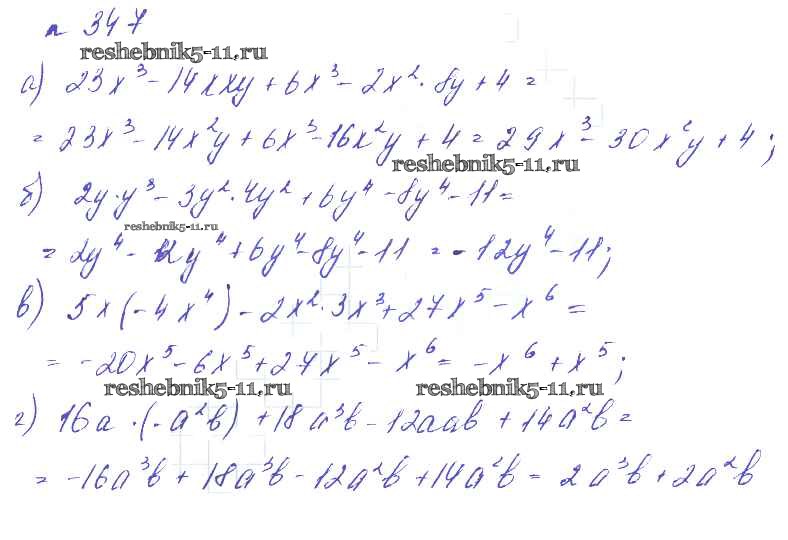 № 347
reshebnik5-11.ru
а) 23x³ - 14xxy + 6x³ - 2x² · 8y + 4 =
= 23x³ - 14x²y + 6x³ - 16x²y + 4 = 29x³ - 30x²y + 4;
reshebnik5-11.ru
б) 2y · y³ - 3y² · 4y² + 6y⁴ - 8y⁴ - 11 =
reshebnik5-11.ru
= 2y⁴ - 12y⁴ + 6y⁴ - 8y⁴ - 11 = -12y⁴ - 11;
в) 5x(-4x⁴) - 2x² · 3x³ + 27x⁵ - x⁶ =
= -20x⁵ - 6x⁵ + 27x⁵ - x⁶ = -x⁶ + x⁵;
reshebnik5-11.ru reshebnik5-11.ru
г) 16a · (-a²b) + 18a³b - 12aab + 14a²b =
= -16a³b + 18a³b - 12a²b + 14a²b = 2a³b + 2a²b